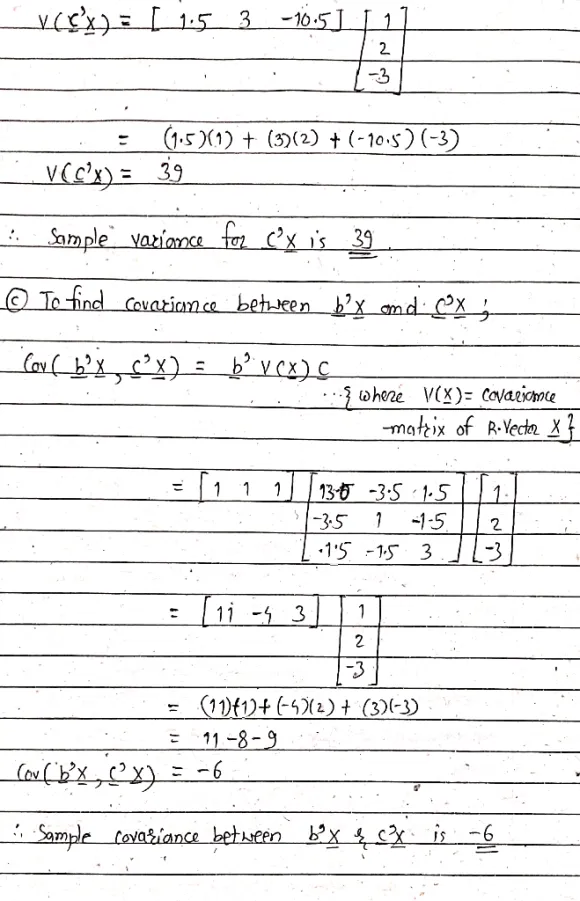 V(c'x) = [ 1.5 3 -10.5 ] [ 1
2
-3 ]
= (1.5)(1) + (3)(2) + (-10.5)(-3)
V(c'x) = 39
∴ Sample variance for c'x is 39
ⓒ To find covariance between b'x and c'x ;
Cov( b'x , c'x ) = b' V(x) c
...{ where V(x) = covariance
matrix of R.Vector x }
= [ 1 1 1 ] [ 13.0 -3.5 1.5 ] [ 1
-3.5 1 -1.5 2
1.5 -1.5 3 ] -3 ]
= [ 11 -4 3 ] [ 1
2
-3 ]
= (11)(1) + (-4)(2) + (3)(-3)
= 11 - 8 - 9
Cov( b'x , c'x ) = -6
∴ Sample covariance between b'x & c'x is -6